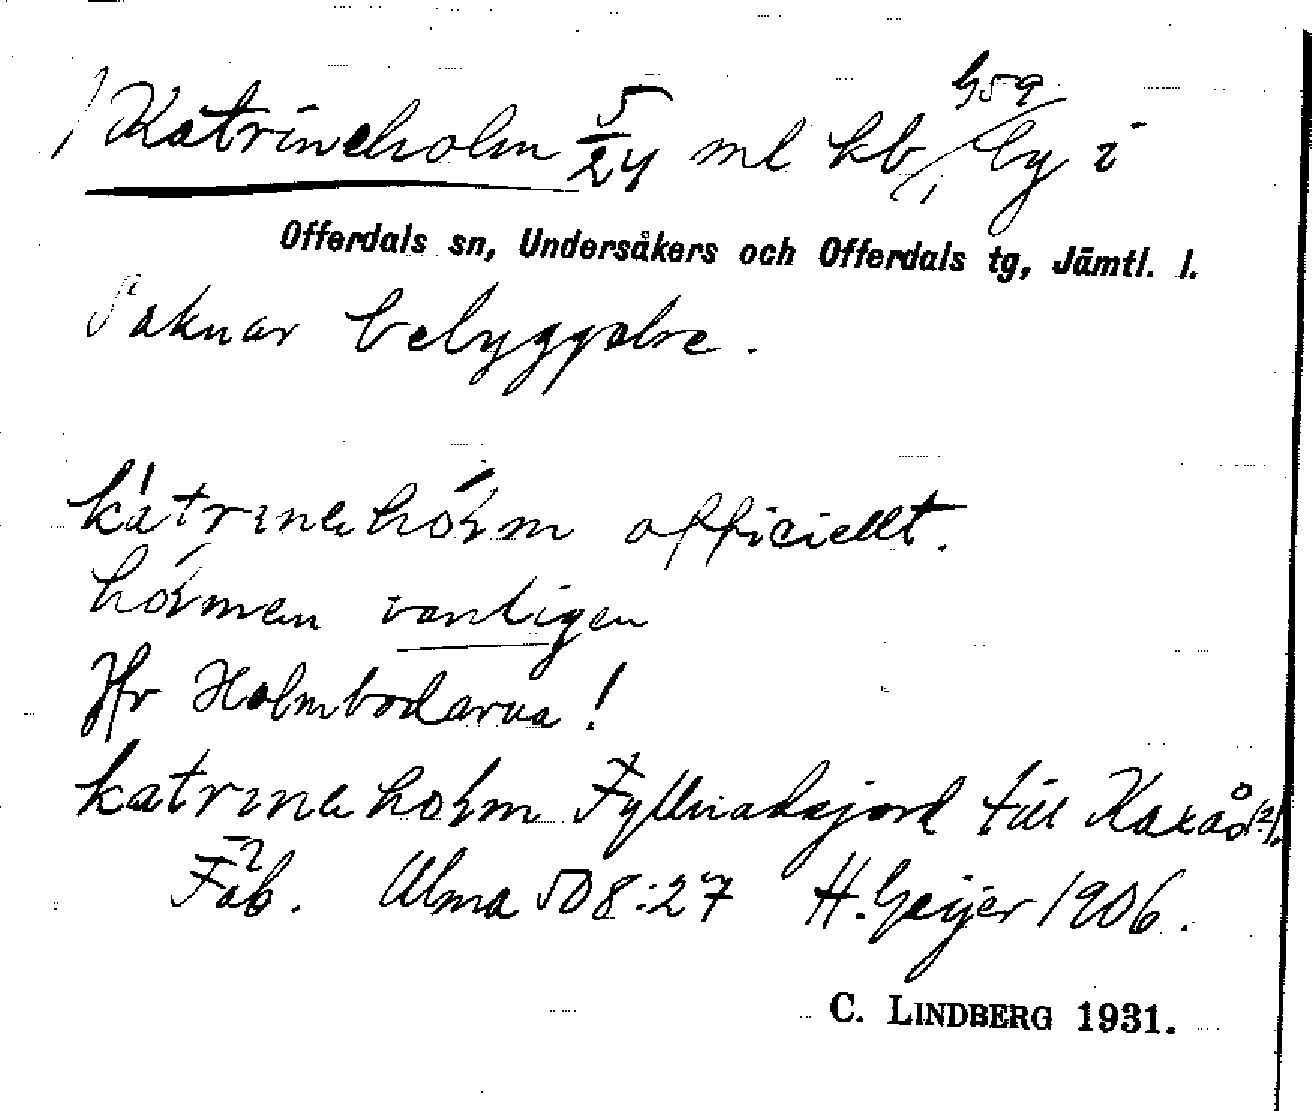 1 Katrineholm 5/24 ml kb, by i
959
Offerdals sn, Undersåkers och Offerdals tg, Jämtl. l.
Saknar bebyggelse.
kátrinehólm officiellt.
hólmen vanligen
Jfr Holmbodarna!
katrineholm Fyllnadsjord till Kaxås 2/.
Fäb. Ulma 508:27 H. Geijer 1906.
C. LINDBERG 1931.